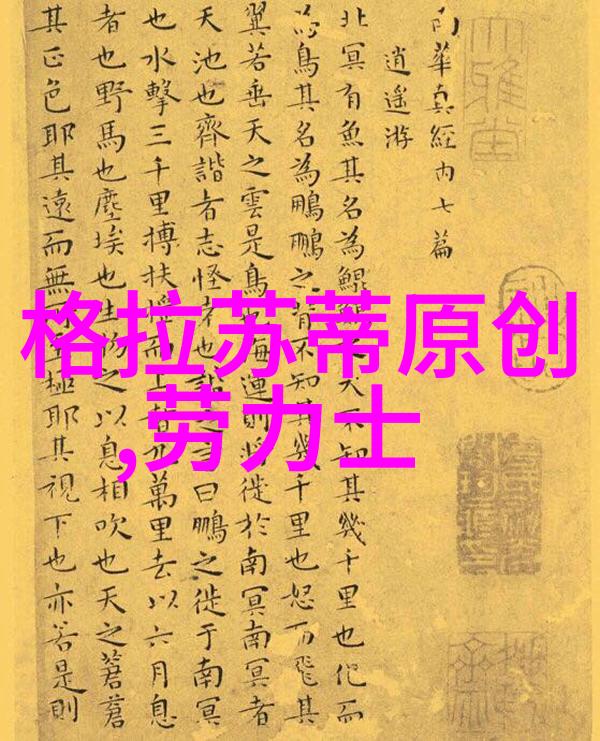 南華真經内七篇
逍遥游
北冥有魚其名為鯤鯤之大不知其幾千里也化而
為鳥其名為鵬鵬之背不知其幾千里也怒而飛其
翼若垂天之雲是鳥也海運則將徙於南冥南冥者
天池也齊諧者志怪者也諧之言曰鵬之徙于南冥
也水擊三千里搏扶摇而上者九萬里去以六月息
者也野馬也塵埃也生物之以息相吹也天之蒼蒼
其正色耶其遠而無所至極耶其視下也亦若是則
格拉苏蒂原创
,劳力士